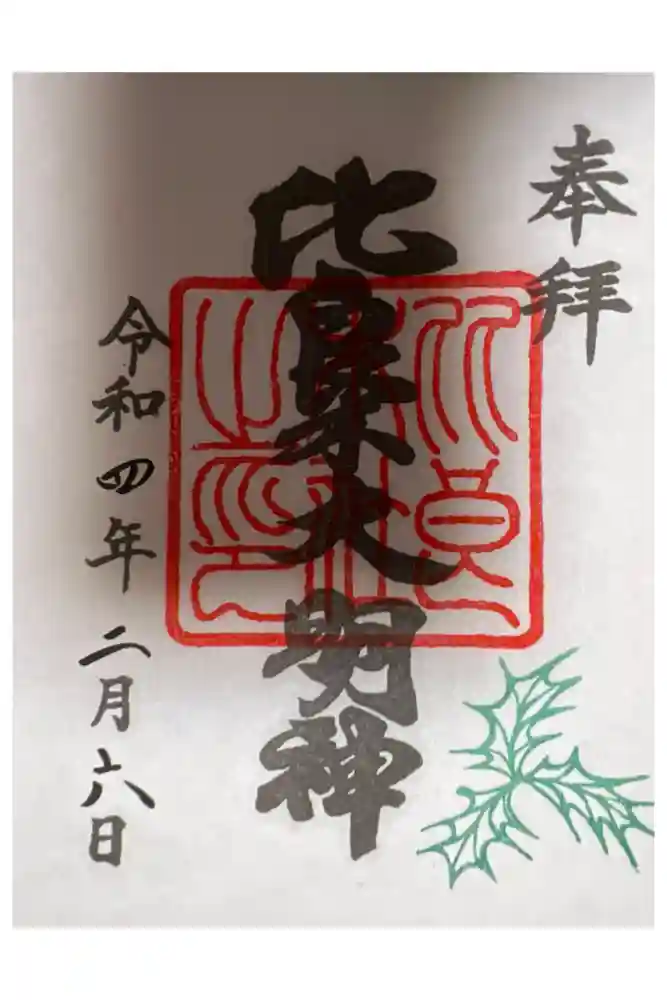 奉拝
比良木大明神
令和四年二月六日